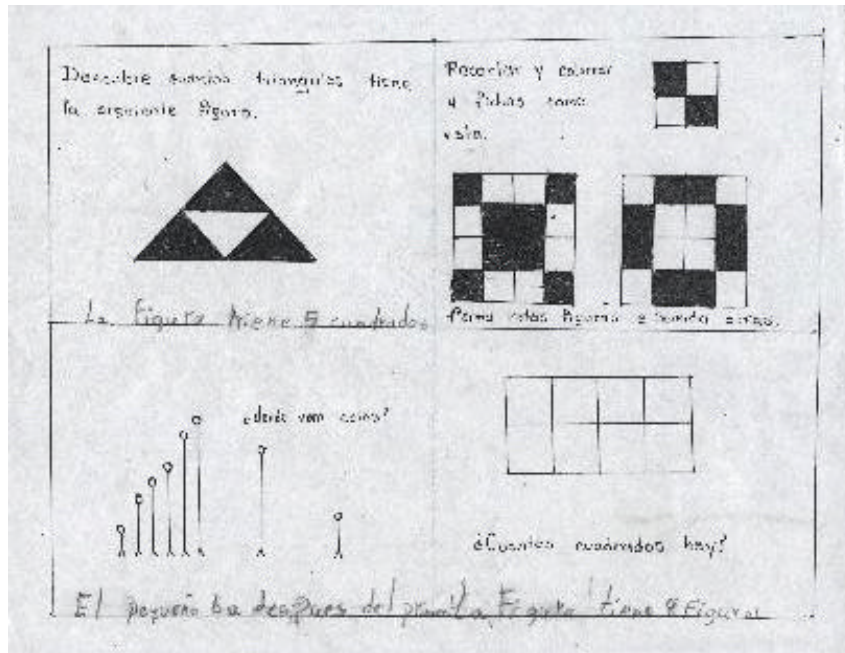 Descubre cuantos triangulos tiene
la siguiente figura.
La figura tiene 5 cuadrados
Recortar y colorear
4 fichas como
esta.
Forma estas figuras e inventa otras.
¿donde van estos?
¿Cuantos cuadrados hay?
El pequeño ba despues del La Figura tiene 8 Figuras